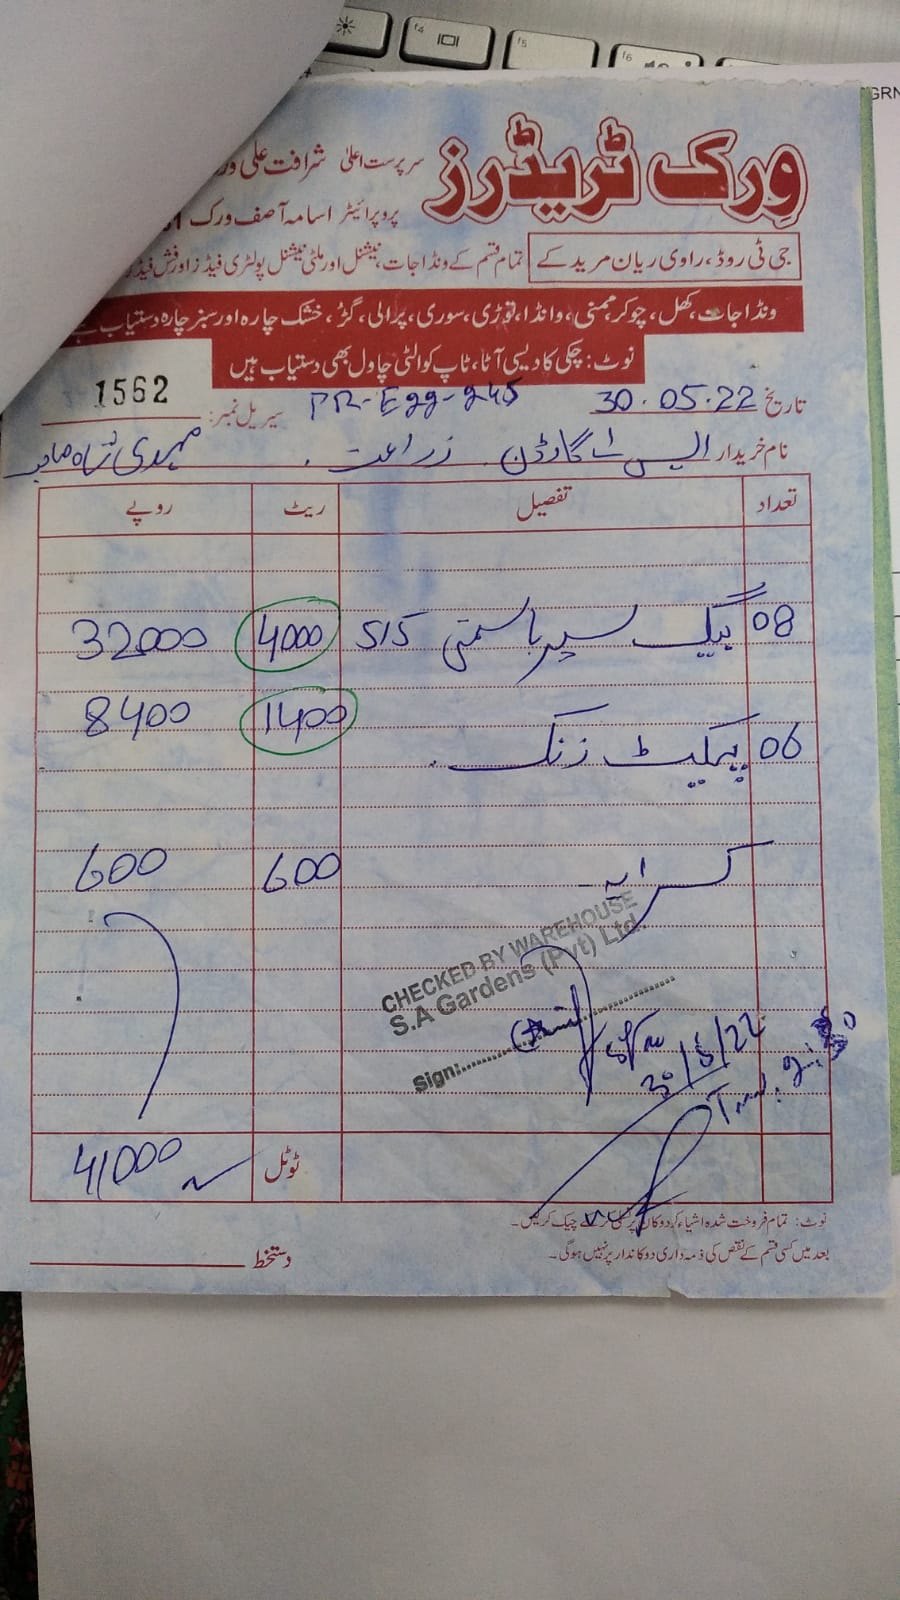 GRN
ورک ٹریڈرز
سرپرست اعلیٰ شرافت علی
پروپرائیٹر اسامہ آصف ورک
جی ٹی روڈ، راوی ریان مرید کے تمام قسم کے ونڈا جات، نیشنل اور ملٹی نیشنل پولٹری فیڈز اور فش فیڈ
ونڈا جات، کھل، چوکر، ممنی، وانڈا، توڑی، سوری، پرالی، گڑ، خشک چارہ اور سبز چارہ دستیاب ہے
نوٹ: چکی کا دیسی آٹا، ٹاپ کوالٹی چاول بھی دستیاب ہیں
تاریخ 30.05.22 PR-Egg-245 سیریل نمبر: 1562
نام خریدار ایس اے گارڈن زراعت مہدی شاہ صاحب
تعداد تفصیل ریٹ روپے
08 بیگ سپر باسمتی 515 4000 32000
06 پیکٹ زنک 1400 8400
کرایہ 600 600
CHECKED BY WAREHOUSE
S.A Gardens (Pvt) Ltd.
Sign:
30/5/22
ٹوٹل 41000
نوٹ: تمام فروخت شدہ اشیاء کو دوکان پر چیک کریں۔
بعد میں کسی قسم کے نقص کی ذمہ داری دوکاندار پر نہیں ہو گی۔
دستخط